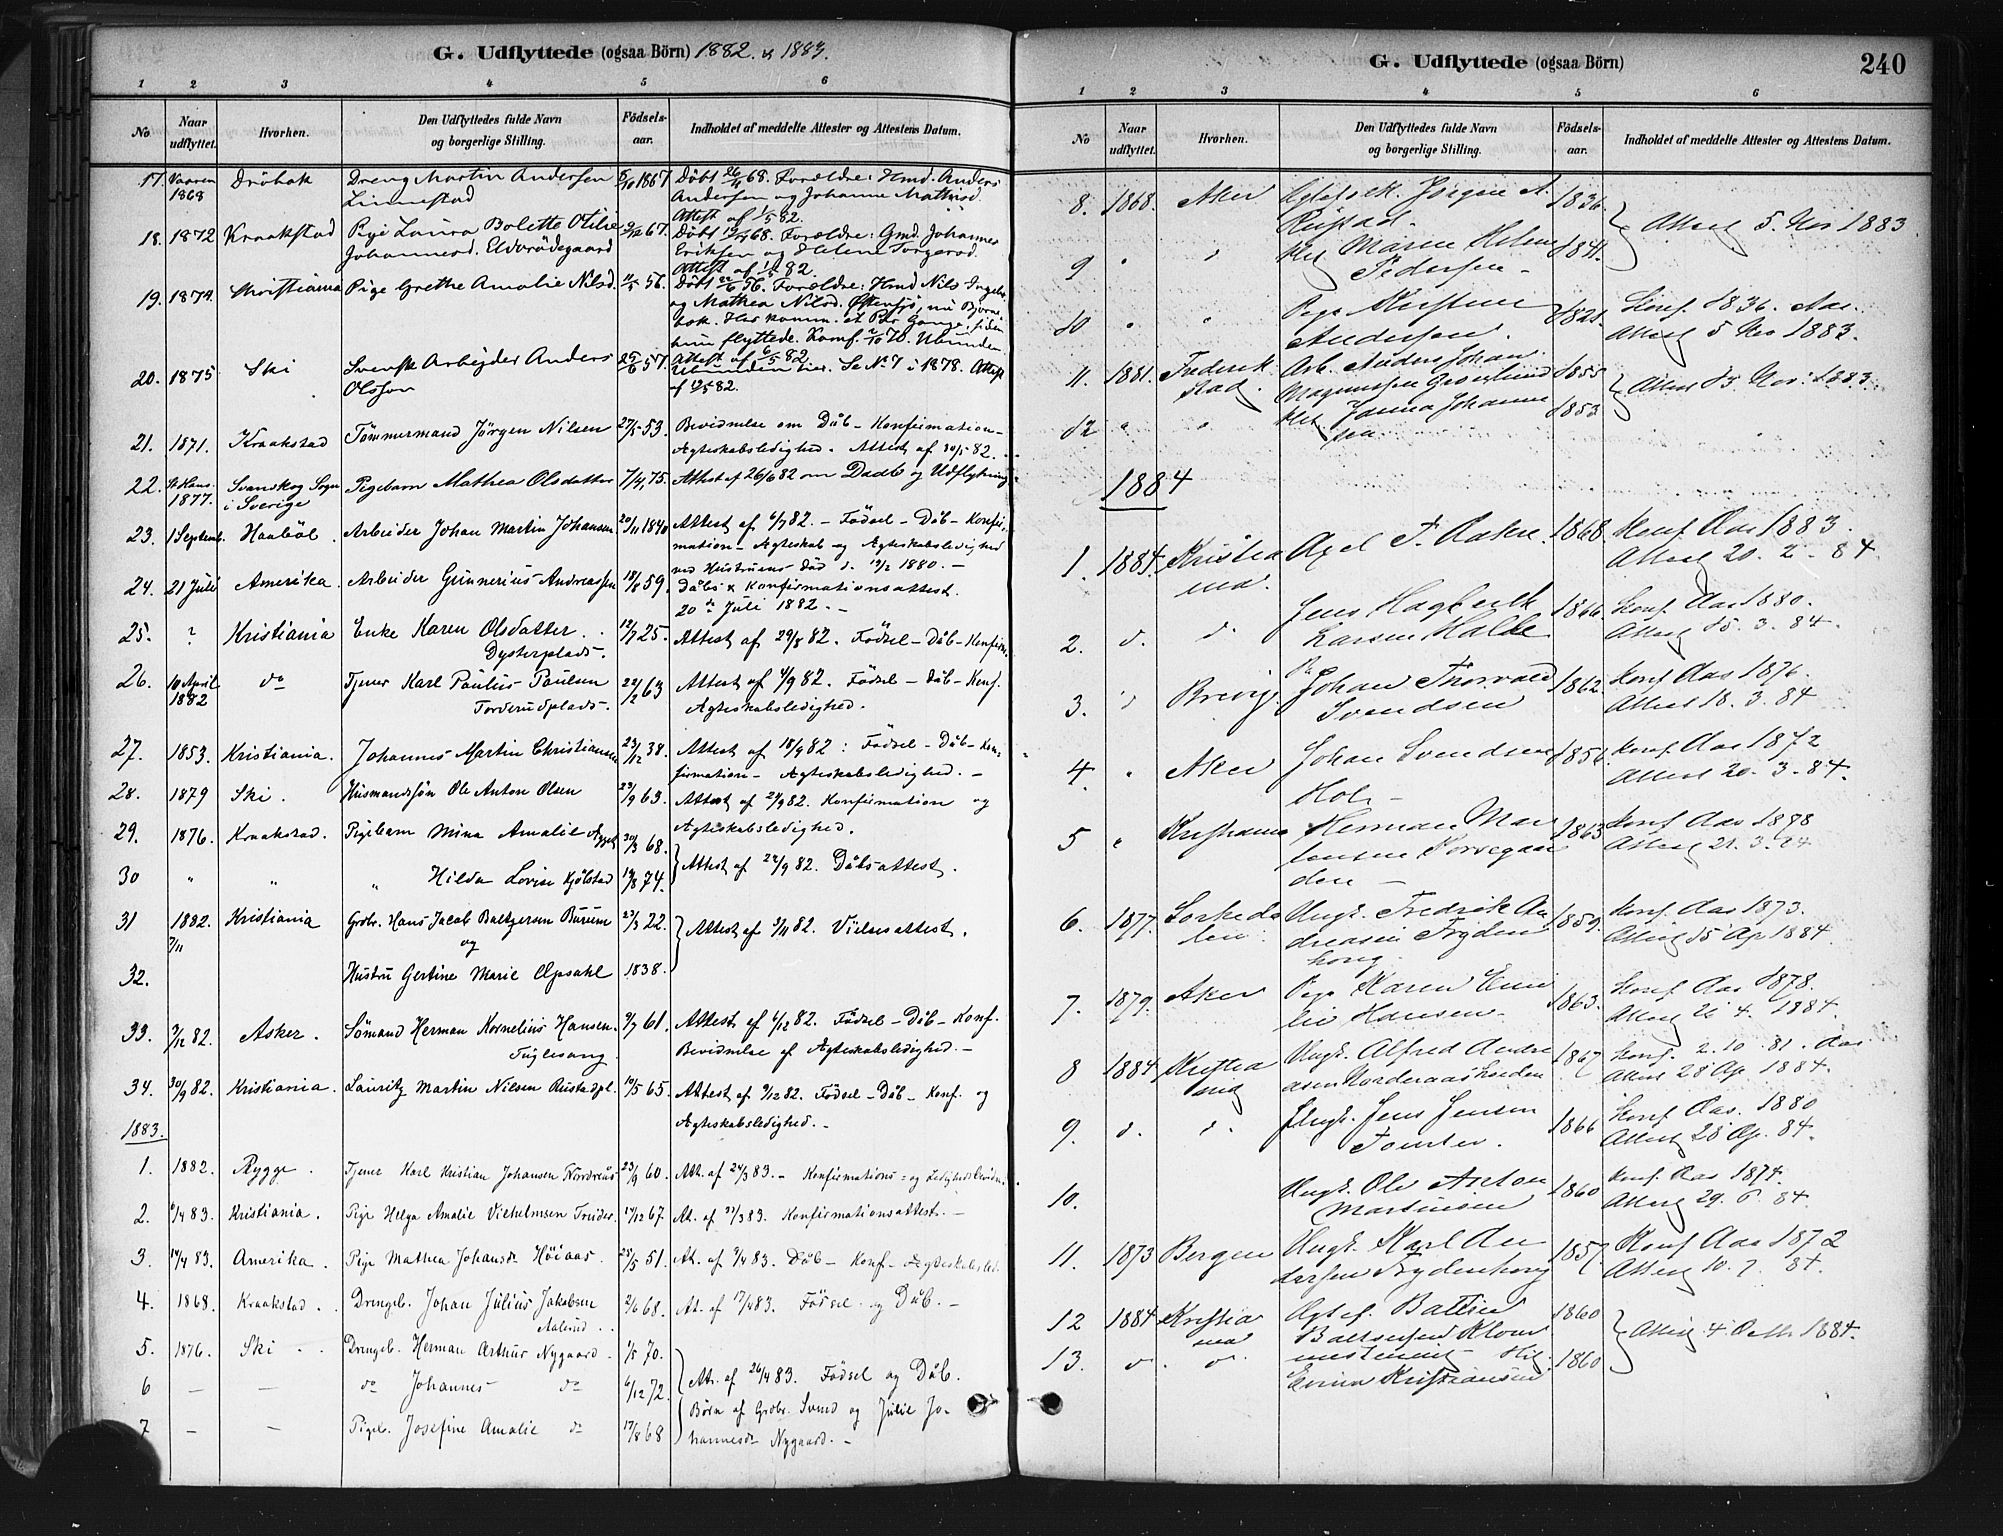 G. Udflyttede (ogsaa Börn) 1882 & 1883.
1 2 3 4 5 6
No Naar udflyttet. Hvorhen. Den Udflyttedes fulde Navn og borgerlige Stilling. Födsels-aar. Indholdet af meddelte Attester og Attestens Datum.
17. Vaaren 1868 Dröbak Dreng Martin Andersen 5/10 1867 Döbt 26/4 68. Forældre: Hmd. Anders
Linnestad Andersen og Johanne Mathisd.
Attest af 1/5 82.
18. 1872 Kraakstad Pige Laura Bolette Otilie 67. Döbt 68. Forældre: Gmd. Johannes
Johannesd. Eriksen og Helene Torgersd.
Attest af 1/5 82.
19. 1874 Christiania Pige Grethe Amalie Nilsd. 56. Döbt 56. Forældre: Hmd Nils
og Mathea Nilsd.
hun flyttede. Konf. 70.
Attest af 6/5 82.
20. 1875 Ski Svenske Arbejder Anders 25/6 57. Se No 7 i 1878. Attest
Olsson af 82.
21. 1871. Kraakstad Tömmermand Jörgen Nilsen 27/5 53. Bevidnelse om Dåb - Konfirmation -
Ægteskabsledighed. Attest af 30/5 82.
22. St. Hans 1877. Svanskog Sogn i Sverige Pigebarn Mathea Olsdatter 7/4 75. Attest af 26/6 82 om Daab og Udflytning
23. 1 Septemb. Haaböl. Arbeider Johan Martin Johansen 20/11 1840 Attest af 6/7 82. - Födsel - Dåb - Konfir-
mation - Ægteskab - og Ægteskabsledighed
ved Hustruens död d. 1880. -
24. 21 Juli Amerika. Arbeider Gunnerius Andreassen 18/8 59. Dåbs & Konfirmationsattest.
20de Juli 1882. -
25. ? Kristiania Enke Karen Olsdatter. 12/7 25. Attest af 29/8 82. Födsel - Dåb - Konfirm.
Dysterplads.
26. 10 April 1882 do Tjener Karl Paulus Paulsen 22/2 63 Attest af 4/9 82. Födsel - Dåb - Konf.
Torderudplads. Ægteskabsledighed.
27. 1853. Kristiania. Johannes Martin Christiansen 23/12 38. Attest af 18/9 82: Födsel - Dåb - Kon-
firmation - Ægteskabsledighed. -
28. 1879 Ski. Husmandssön Ole Anton Olsen 27/9 63. Attest af 24/9 82. Konfirmation og
Ægteskabsledighed.
29. 1876. Kraakstad. Pigebarn Mina Amalie 30/3 68.
Attest af 22/9 82. Dåbsattest.
30 " " " Hilda Lovise Kjölstad 19/8 74.
31 1882. 3/11 Kristiania Grdbr. Hans Jacob Baltzersen Burum 27/3 22. Attest af 3/11 82. Vielsesattest.
og
32. Hustru Gertine Marie Opsahl 1838.
33. 3/12 82. Asker. Sömand Herman Kornelius Hansen. 9/7 61. Attest af 6/12 82. Födsel - Dåb - Konf.
Fuglesang. Bevidnelse af Ægteskabsledighed. -
34. 30/9 82. Kristiania. Lauritz Martin Nilsen Rustadpl. 19/5 65. Attest af 9/12 82. Födsel - Dåb - Konf. og
Ægteskabsledighed. -
1883.
1. 1882. Rygge. Tjener Karl Kristian Johansen Nordaas 23/9 60. Att. af 24/3 83. - Konfirmations- og
2. 4/4 83. Kristiania. Pige Helga Amalie Vilhelmsen 17/12 67. At. af 31/3 83. Konfirmationsattest. -
3. 14/4 83. Amerika. Pige Mathea Johansdr Höiaas. 25/5 51. At. af 9/4 83. Dåb - Konf. - Ægteskabsled.
4. 1868. Kraakstad. Drengeb. Johan Julius Jakobsen 2/6 68. At. af 17/4 83. Födsel - og Dåb. -
Aalerud.
5. 1876. Ski. Drengeb. Herman Arthur Nygaard. 1/5 70.
Att. af 26/4 83. Födsel og Dåb.
6 — — do Johannes do 6/12 72.
Börn af Grdbr. Svend og Julie Jo-
7 — — Pigeb. Josefine Amalie do 17/8 68
hannesdr Nygaard. -
G. Udflyttede (ogsaa Börn) 240
1 2 3 4 5 6
No Naar udflyttet. Hvorhen. Den Udflyttedes fulde Navn og borgerlige Stilling. Födsels-aar. Indholdet af meddelte Attester og Attestens Datum.
8. 1868. Aker Ægtefolk. Jörgen A. 1836.
Rustad. Attest 5. Nov 1883.
9 " " Maren Helene 1841.
Pedersen -
10 " " Pige Kristine 1821. Konf. 1836. Aas.
Andersen. Attest 5 Nov 1883.
11. 1881. Frederikstad. Arb. Anders Johan 1855
Magnussen Attest 15. Nov. 1883.
12 " " Hst. Janna Johanne 1853
sen
1884
1. 1884. Kristiania. Axel F. Aasen. 1868. Konf. Aas 1883.
Attest 20. 2. 84
2. d. d. Jens 1866. Konf. Aas 1880.
Larsen Attest 15. 3. 84.
3. " Brevig Johan Thorvald 1862. Konf. Aas 1876.
Svendsen Attest 18. 3. 84
4. " Aker Johan Svendsen 1856. Konf. Aas 1872
Attest 20. 3. 84.
5 " Kristiania Herman 1863 Konf. Aas 1878
Attest 21. 3. 84
6. 1877. Sörkedalen. Ungk. Fredrik An 1859. Konf. Aas 1873.
dreasen Fryden Attest 15 Ap 1884.
hong.
7. 1879. Aker Pige Karen Emi 1863. Konf. Aas 1878.
lie Hansen. Attest 21 4. 1884.
8 1884 Kristiania Ungk. Alfred Andre 1867 Konf. 2. 10 81. Aas.
asen Attest 28 Ap. 1884.
9. d. d. Ungk. Jens Jensen 1866 Konf. Aas. 1880
Tomter. Attest 28 Ap. 84.
10. Ungk. Ole Anton 1860 Konf. Aas 1874.
Martinsen Attest 29. 6. 84.
11. 1873 Bergen Ungk. Karl An 1857. Konf. Aas 1872
dersen Frydenhong Attest 10. 7. 84.
12 1884 Kristiania Ægtef. 1860
Attest 4 Octbr 1884.
13. d. d. 1860
Kristiansen